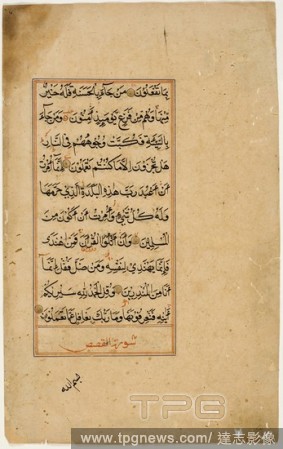 بما تفعلون من جاء بالحسنة فله خير
منها وهم من فزع يومئذ آمنون ومن جاء
بالسيئة فكبت وجوههم في النار
هل تجزون إلا ما كنتم تعملون إنما أمرت
أن أعبد رب هذه البلدة الذي حرمها
وله كل شيء وأمرت أن أكون من
المسلمين وأن أتلو القرآن فمن اهتدى
فإنما يهتدي لنفسه ومن ضل فقل إنما
أنا من المنذرين وقل الحمد لله سيريكم
آياته فتعرفونها وما ربك بغافل عما تعملون
سورة القصص
بسم الله
TPG
www.tpgnews.com / 達志影像